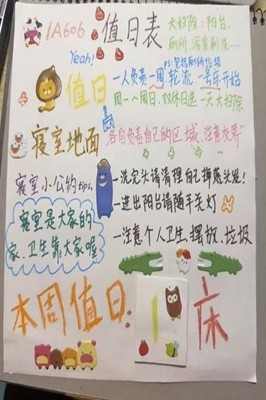 1A606 值日表
大扫除：阳台、
厕所、浴室刷洗...
Yeah!
值日
一人负责一周轮流，一号床开始
周一~周日，双休日选一天大扫除
寝室地面
各自负责自己的区域 注意效率
寝室小公约tips,
一洗完头请清理自己掉落头发！
一进出阳台请随手关灯
寝室是大家的
家，卫生靠大家喔
一注意个人卫生，摆放、垃圾
本周值日：1床